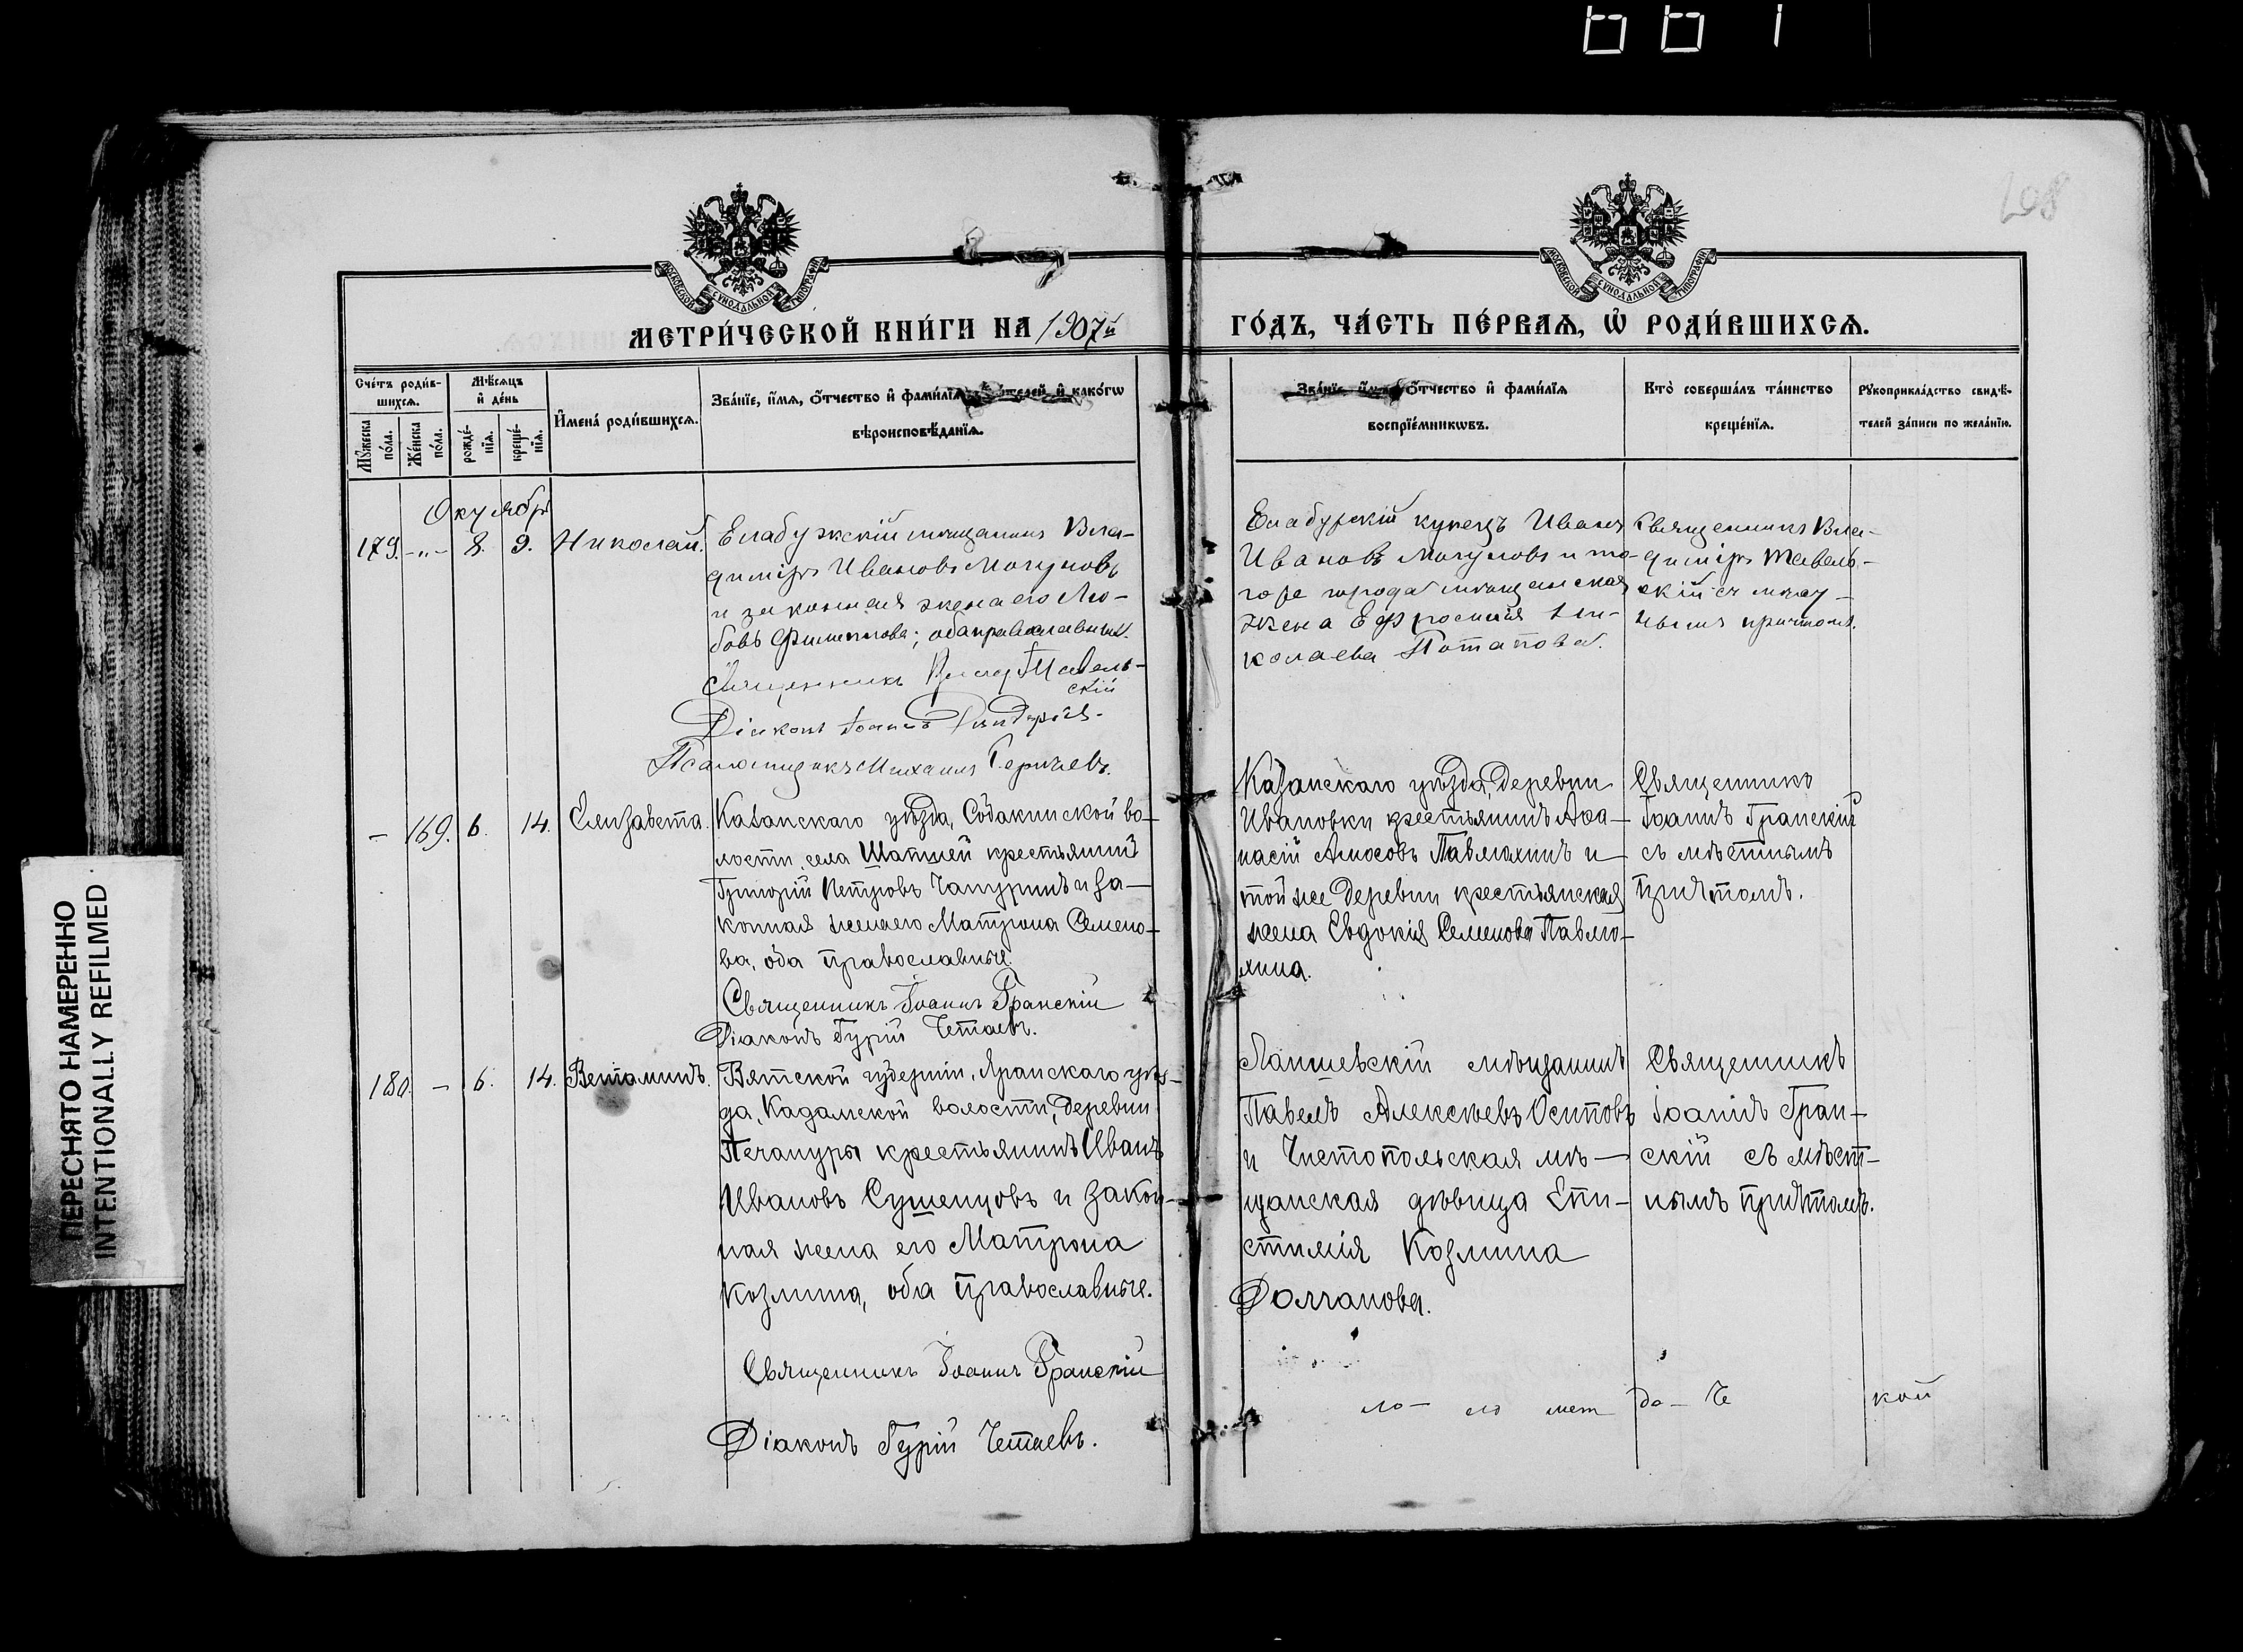 661
208
МОСКОВСКОЙ СУНОДАЛЬНОЙ ТИПОГРАФИИ
МОСКОВСКОЙ СУНОДАЛЬНОЙ ТИПОГРАФИИ
МЕТРИ́ЧЕСКОЙ КНИ́ГИ НА 1907й
ГО́ДЪ, ЧА́СТЬ ПЕ́РВАѦ, Ѡ҆ РОДИ́ВШИХСѦ.
Сче́тъ роди́в-
шихсѧ.
Мѣ́сѧцъ
и҆ де́нь
Мꙋ́жеска
по́ла.
Же́нска
по́ла.
рожде́-
нїѧ.
креще́-
нїѧ.
И҆мена̀ роди́вшихсѧ.
Зва́нїе, и҆́мѧ, о҆́тчество и҆ фами́лїѧ и҆ како́гѡ
вѣроисповѣ́данїѧ.
Зва́нїе, о҆́тчество и҆ фами́лїѧ
воспрїе́мникѡвъ.
Кто̀ соверша́лъ та́инство
креще́нїѧ.
Рꙋкоприкла́дство свидѣ́-
телей за́писи по жела́нїю.
Октябрь
179. -"- 8. 9. Николай.
Елабужскій мѣщанинъ Вла-
диміръ Ивановъ Могуновъ
и законная жена его Лю-
бовь Филиппова; оба православные.
Священникъ Влад. Павель-
скій
Діаконъ Іоаннъ
Псаломщикъ Михаилъ
Елабужскій купецъ Иванъ
Ивановъ Могуновъ и то-
го же города мѣщанская
жена Ефросинія Ни-
колаева Потапова.
Священникъ Вла-
диміръ Павель-
скій съ мѣст-
нымъ причтомъ.
- 169. 6. 14. Елизавета.
Казанскаго уѣзда, Собакинской во-
лости, села Шапшей крестьянинъ
Григорій Петровъ Чапуринъ и за-
конная жена его Матрона Семено-
ва, оба православные.
Священникъ Іоаннъ Гранскій
Діаконъ Гурій Четаевъ.
Казанскаго уѣзда, деревни
Ивановки крестьянинъ Аѳа-
насій Амосовъ Павлюхинъ и
той же деревни крестьянская
жена Евдокія Семенова Павлю-
хина.
Священникъ
Іоаннъ Гранскій
съ мѣстнымъ
причтомъ.
180. - 6. 14. Веніаминъ.
Вятской губерніи, Яранскаго уѣз-
да, Кадамской волости, деревни
Печануры крестьянинъ Иванъ
Ивановъ Сушенцовъ и закон-
ная жена его Матрона
Козмина, оба православные.
Священникъ Іоаннъ Гранскій
Діаконъ Гурій Четаевъ.
Лаишевскій мѣщанинъ
Павелъ Алексѣевъ Осиповъ
и Чистопольская мѣ-
щанская дѣвица Епи-
стимія Козмина
Долганова.
Священникъ
Іоаннъ Гран-
скій съ мѣст-
нымъ причтомъ.
кой
ПЕРЕСНЯТО НАМЕРЕННО
INTENTIONALLY REFILMED